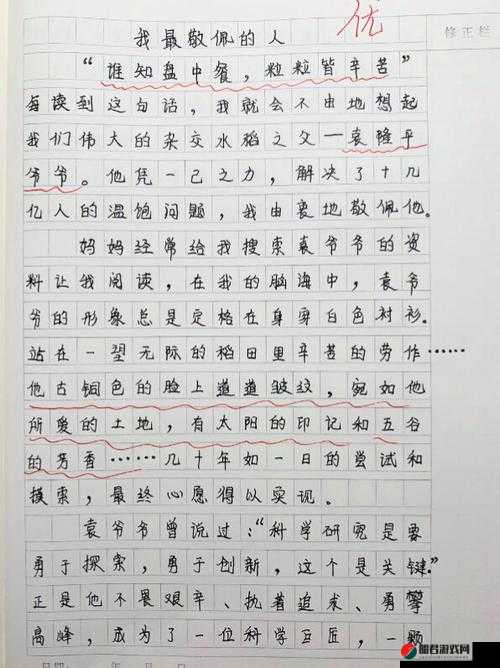 我最敬佩的人
优
修正栏
“谁知盘中餐，粒粒皆辛苦”
每读到这句话，我就会不由地想起
我们伟大的杂交水稻之父——袁隆平
爷爷。他凭一己之力，解决了十几
亿人的温饱问题，我由衷地敬佩他。
妈妈经常给我搜索袁爷爷的资
料让我阅读，在我的脑海中，袁爷
爷的形象总是定格在身穿白色衬衫。
站在一望无际的稻田里辛苦的劳作……
他古铜色的脸上道道皱纹，宛如他
所爱的土地，有太阳的印记和五谷
的芳香……几十年如一日的尝试和
摸索，最终心愿得以实现。
袁爷爷曾说过：“科学研究是要
勇于探索，勇于创新，这个是关键。”
正是他不畏艰辛、执着追求、勇攀
高峰，成为了一位科学巨匠，一颗